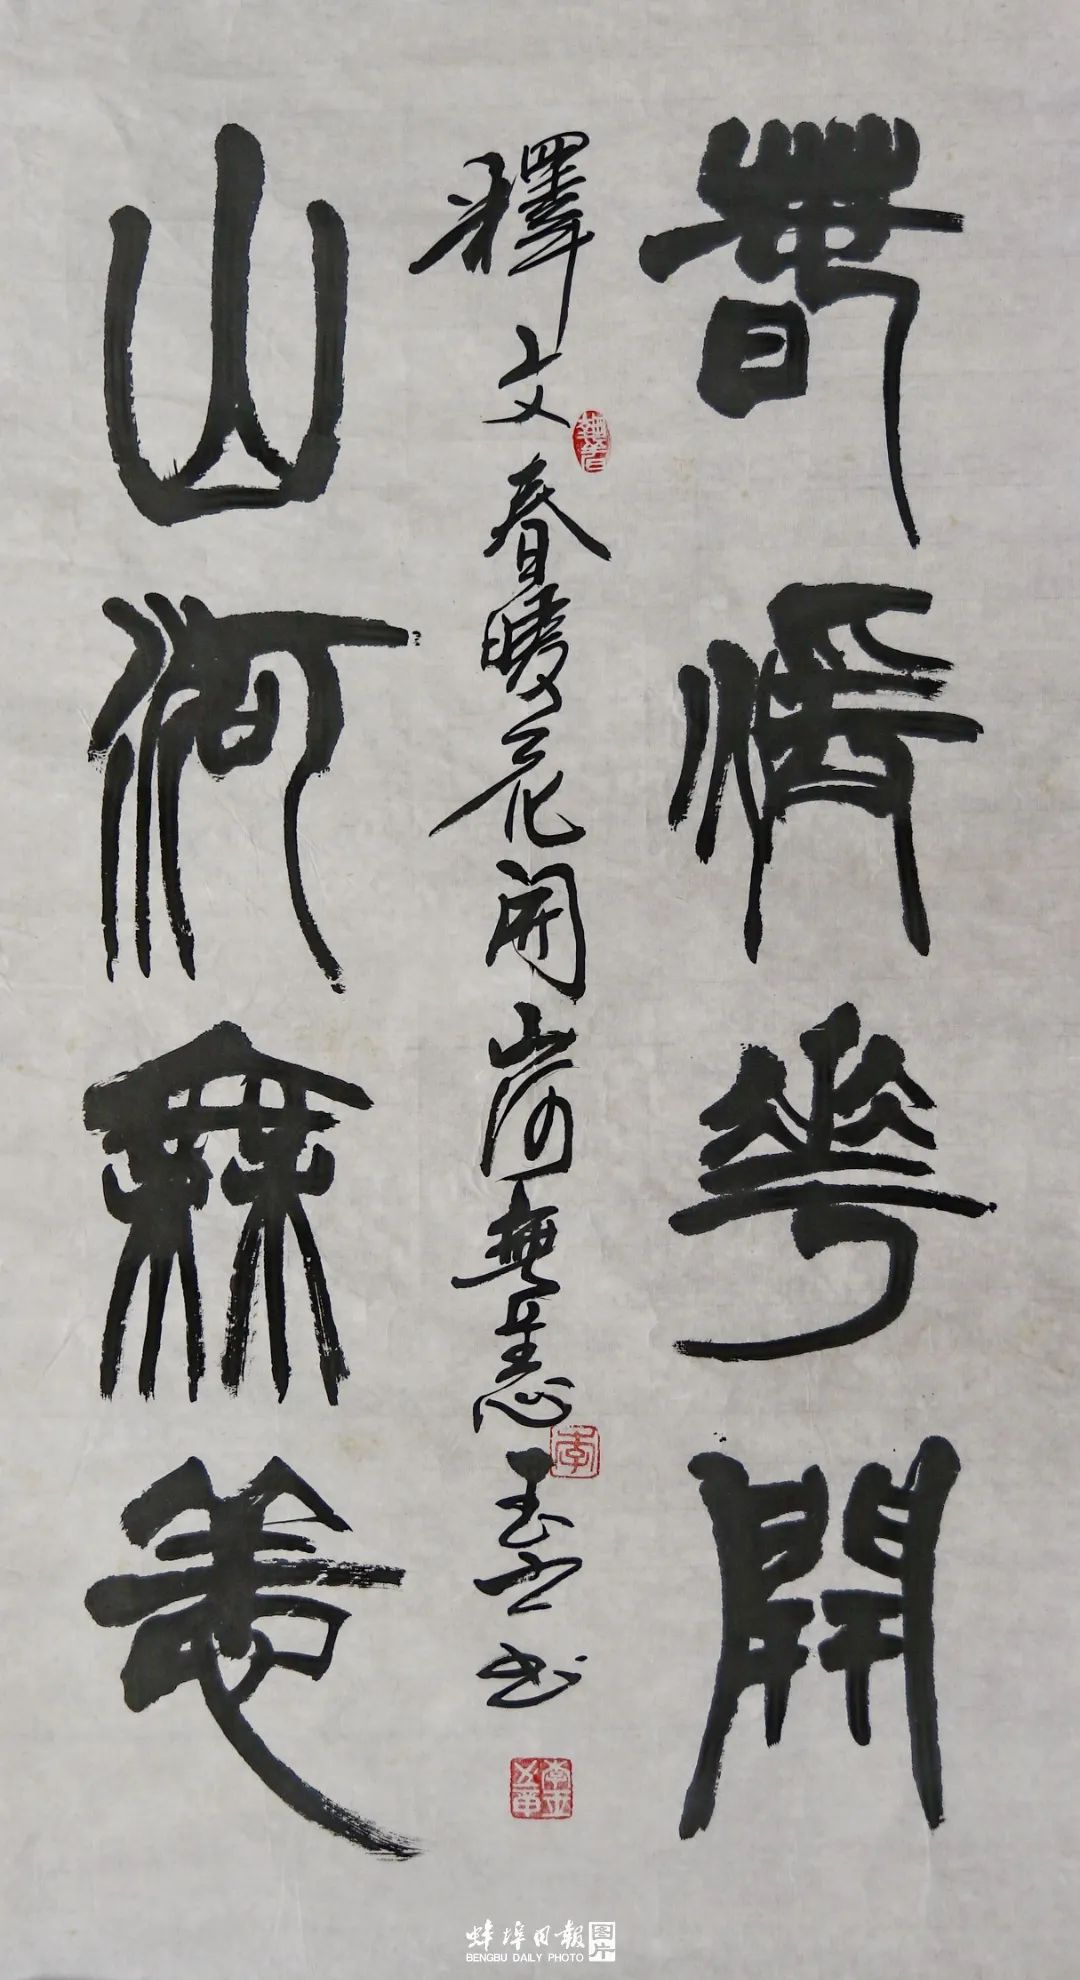 春煖華開
釋文春暖花開山河無恙玉书
山河無恙
蚌埠日報 图片
BENGBU DAILY PHOTO